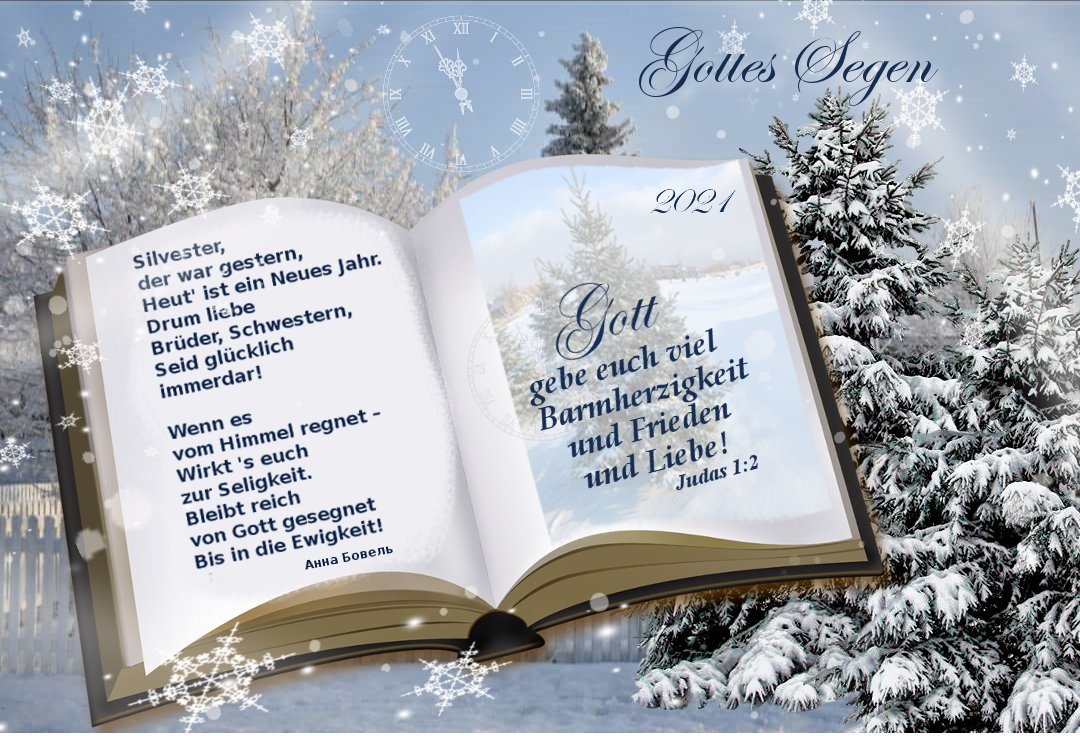 Gottes Segen
XII
I
III
IIII
VI
VII
VIII
IX
XI
Silvester,
der war gestern,
Heut' ist ein Neues Jahr.
Drum liebe
Brüder, Schwestern,
Seid glücklich
immerdar!
Wenn es
vom Himmel regnet –
Wirkt 's euch
zur Seligkeit.
Bleibt reich
von Gott gesegnet
Bis in die Ewigkeit!
Анна Бовель
2021
Gott
gebe euch viel
Barmherzigkeit
und Frieden
und Liebe!
Judas 1:2